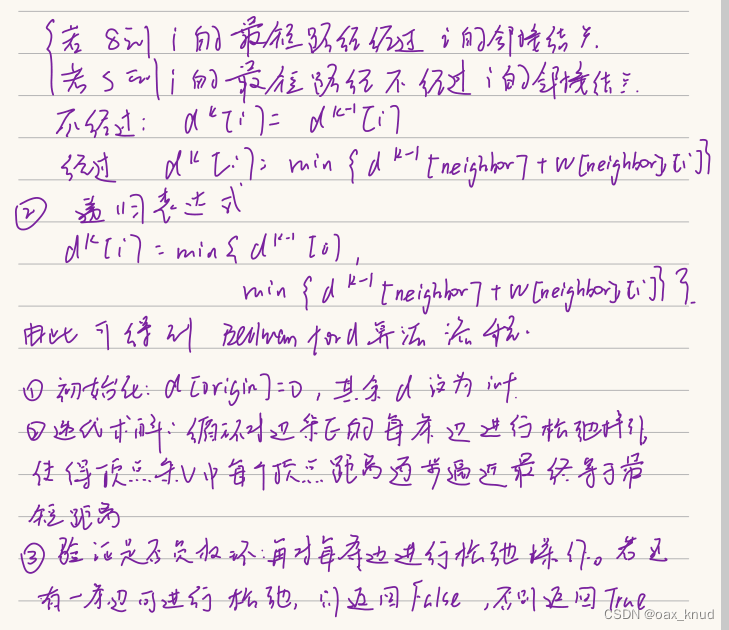 若 S到 i 的最短路径经过 i的邻接结点.
若 S到 i 的最短路径不经过 i的邻接结点.
不经过: d^k[i] = d^{k-1}[i]
经过 d^k[i]= min { d^{k-1}[neighbor] + w[neighbor, [i]}
② 递归表达式
d^k[i] = min { d^{k-1}[i] ,
min { d^{k-1}[neighbor] + w[neighbor], [i]} }.
由此可得到 Bellman ford 算法流程.
① 初始化: d[origin]=0 , 其余 d 设为 inf.
② 迭代求解: 循环对边集E的每条边进行松弛操作,
使得顶点集V中每个顶点距离逐步逼近最终等于最
短距离
③ 验证是否负权环:再对每条边进行松弛操作。若还
有一条边可进行松弛, 则返回 False , 否则返回 True
CSDN @oax_knud